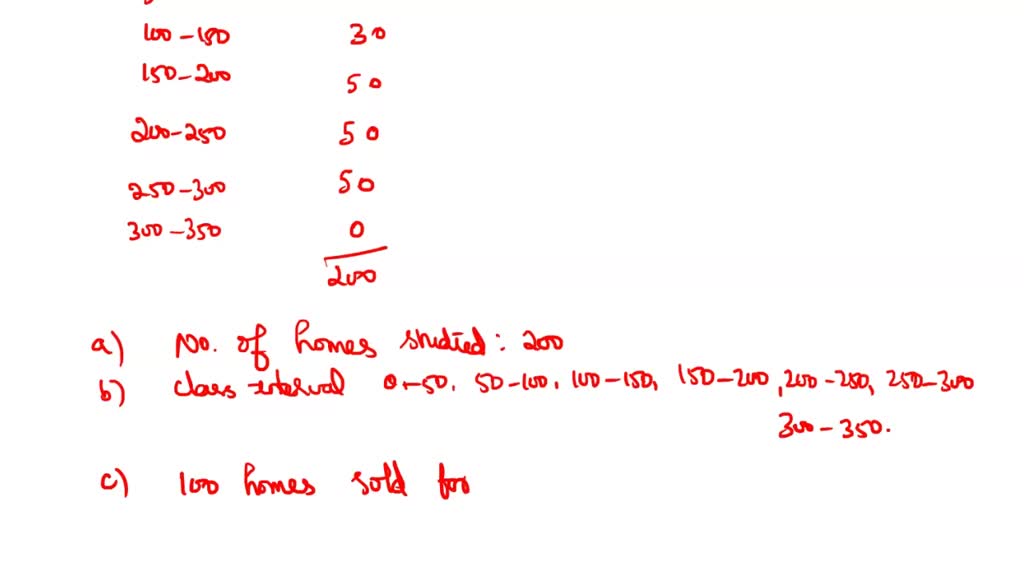 100-150 30
150-200 50
200-250 50
250-300 50
300-350 0
200
a) No. of homes studied: 200
b) class interval 0-50, 50-100, 100-150, 150-200, 200-250, 250-300
300-350.
c) 100 homes sold for